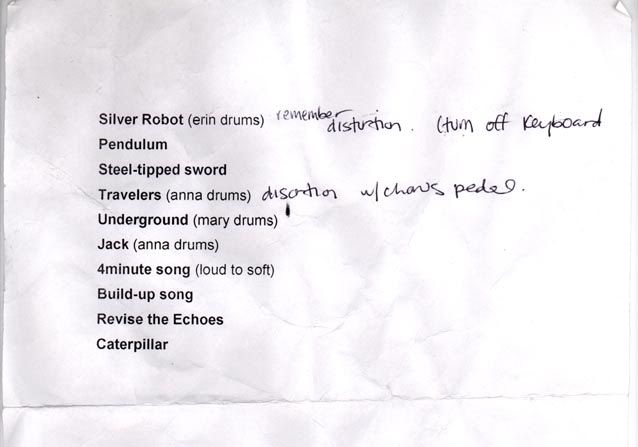 Silver Robot (erin drums) remember distortion. (turn off Keyboard
Pendulum
Steel-tipped sword
Travelers (anna drums) distortion w/ pedal.
Underground (mary drums)
Jack (anna drums)
4minute song (loud to soft)
Build-up song
Revise the Echoes
Caterpillar